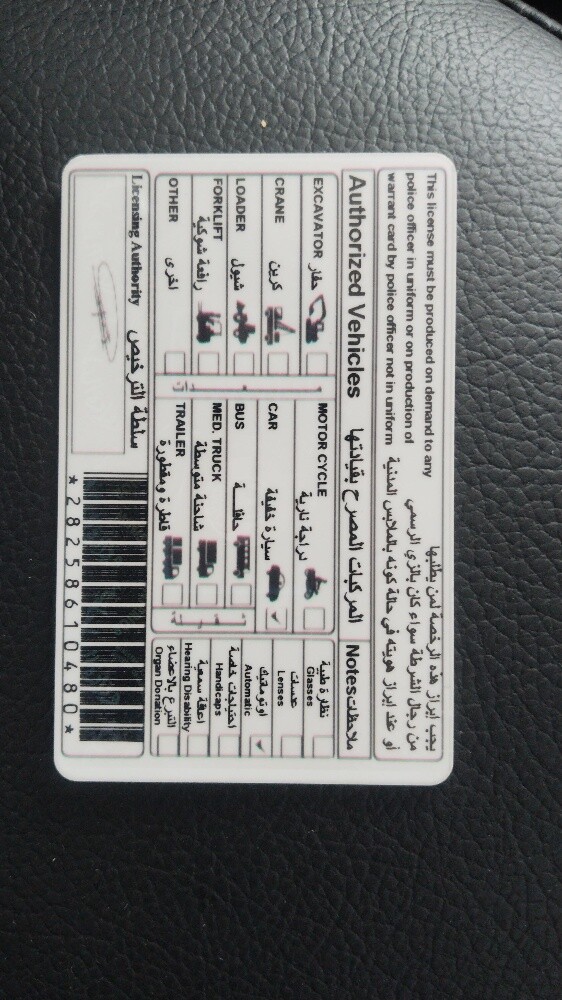 This license must be produced on demand to any
police officer in uniform or on production of
warrant card by police officer not in uniform
يجب ابراز هذه الرخصة لمن يطلبها
من رجال الشرطة سواء كان بالزي الرسمي
أو عند ابراز هويته في حالة كونه بالملابس المدنية
Authorized Vehicles المركبات المصرح بقيادتها
Notes ملاحظات
EXCAVATOR حفار
CRANE كرين
LOADER شيول
FORKLIFT
رافعة شوكية
OTHER اخرى
MOTOR CYCLE
دراجة نارية
CAR سيارة خفيفة
BUS حافلة
MED. TRUCK
شاحنة متوسطة
TRAILER
قاطرة ومقطورة
نظارة طبية
Glasses
عدسات
Lenses
اوتوماتيك
Automatic
احتياجات خاصة
Handicaps
اعاقة سمعية
Hearing Disability
التبرع بالاعضاء
Organ Donation
Licensing Authority سلطة الترخيص
*28258610480*